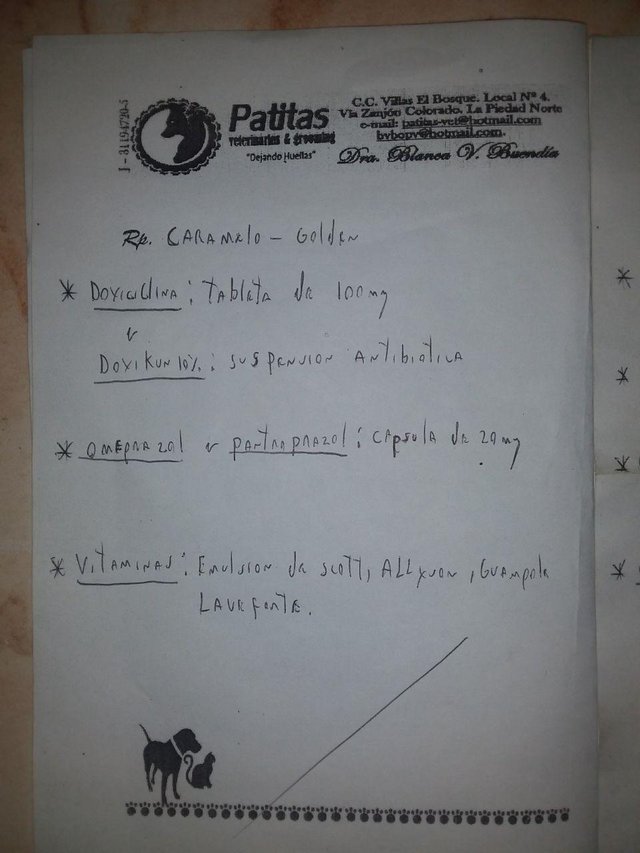 J-31194720-5
Patitas
veterinarias & grooming
"Dejando Huellas"
C.C. Villas El Bosque. Local Nº 4.
Vía Zanjón Colorado. La Piedad Norte
e-mail: patitas-vet@hotmail.com
bvbopv@hotmail.com.
Dra. Blanca V. Buendía
Rp. CARAMELO - GOLDEN
* DOXICICLINA: TABLETA DE 100mg
DOXIKUN 10%: SUSPENSION ANTIBIOTICA
* OMEPRAZOL PANTOPRAZOL: CAPSULA DE 20mg
* VITAMINAS: EMULSION DE SCOTT,
LAVEFORTE.